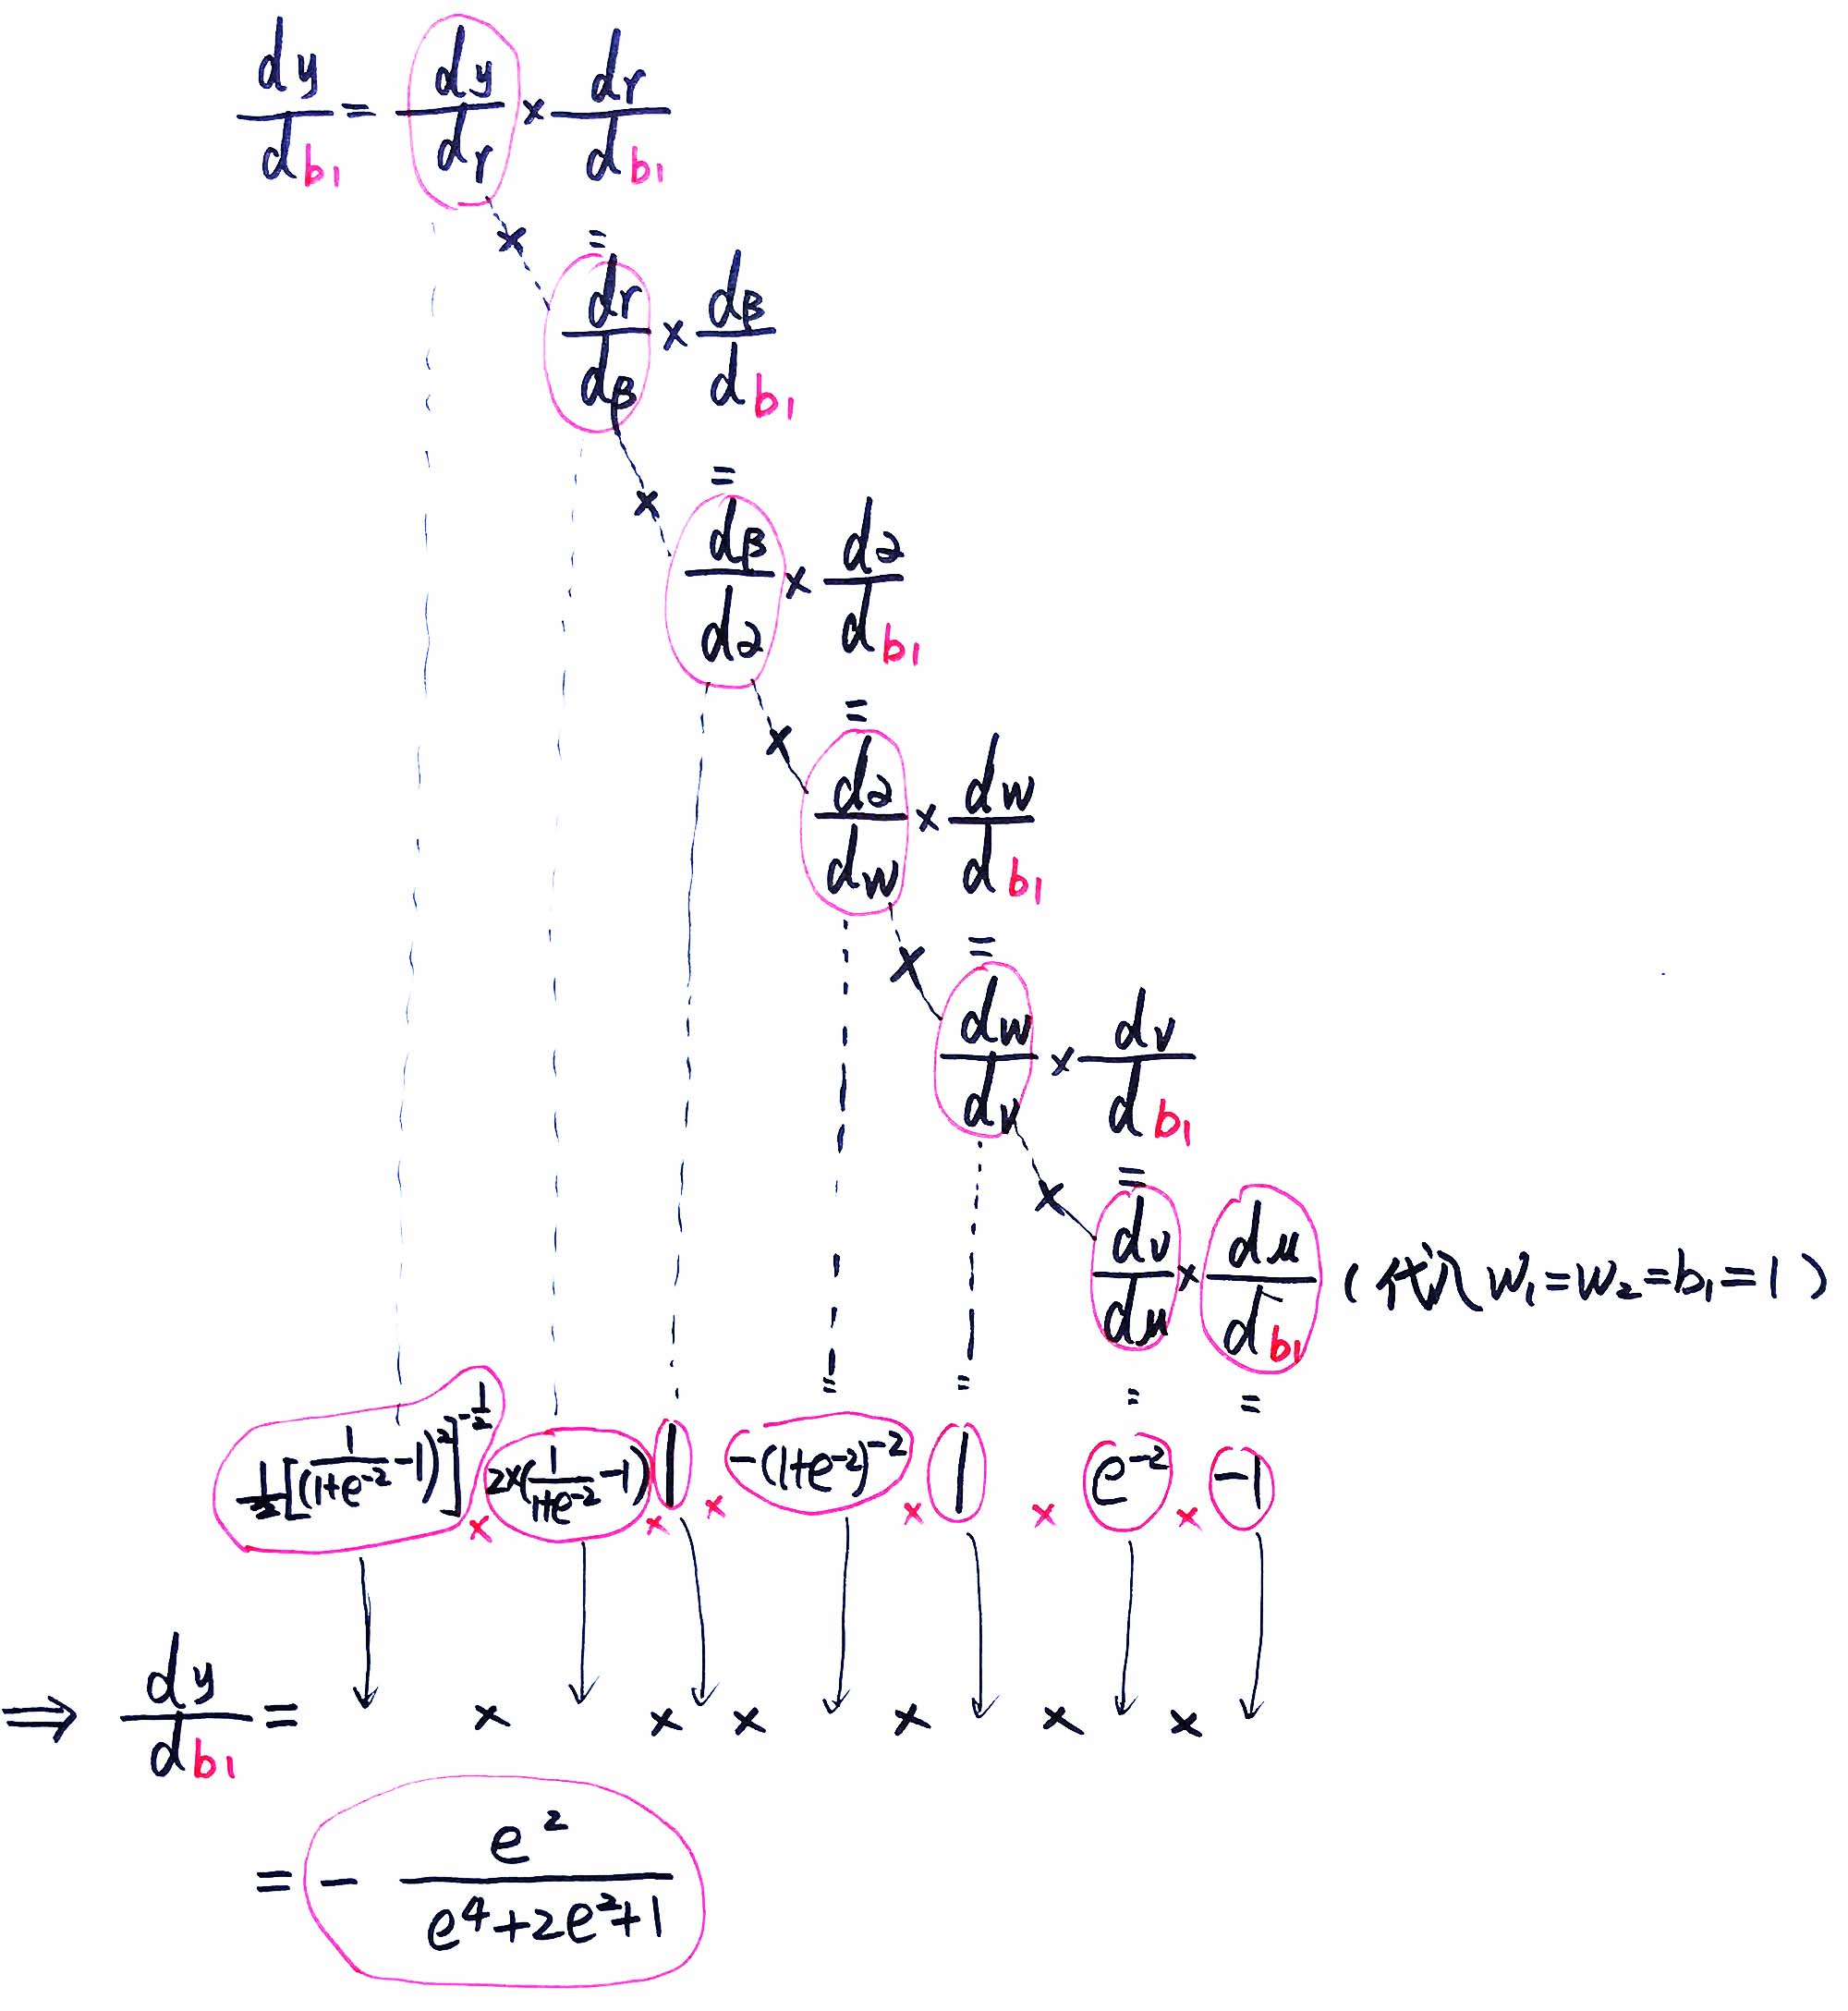 dy/db₁ = dy/dr × dr/db₁
×
= dr/dβ × dβ/db₁
×
= dβ/da × da/db₁
×
= da/dw × dw/db₁
×
= dw/dv × dv/db₁
×
= dv/du × du/db₁ (代入 w₁=w₂=b₁=1)
= = = =
1/2[(1/(1+e⁻²)-1)²]^(-1/2) × 2×(1/(1+e⁻²)-1) × 1 × -(1+e⁻²)⁻² × 1 × e⁻² × -1
⇒ dy/db₁ = × × × × × ×
= - e²/(e⁴+2e²+1)